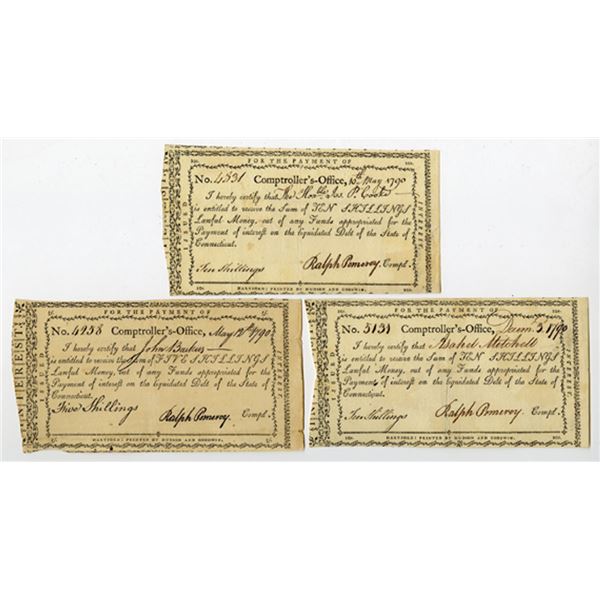 FOR THE PAYMENT OF
No. 4531 Comptroller's-Office, 10th May 1790
I hereby certify that The Honble Jos. P. Cooke
is entitled to receive the Sum of TEN SHILLINGS
Lawful Money, out of any Funds appropriated for the
Payment of interest on the liquidated Debt of the State of
Connecticut.
Ten Shillings Ralph Pomeroy Compt.
HARTFORD: PRINTED BY HUDSON AND GOODWIN.
ISSUED
INTEREST
FOR THE PAYMENT OF
No. 4258 Comptroller's-Office, May 1790
I hereby certify that John Backus
is entitled to receive the Sum of FIVE SHILLINGS
Lawful Money, out of any Funds appropriated for the
Payment of interest on the liquidated Debt of the State of
Connecticut.
Five Shillings Ralph Pomeroy Compt.
HARTFORD: PRINTED BY HUDSON AND GOODWIN.
FOR THE PAYMENT OF
No. 5131 Comptroller's-Office, 1790
I hereby certify that Asahel Mitchell
is entitled to receive the Sum of TEN SHILLINGS
Lawful Money, out of any Funds appropriated for the
Payment of interest on the liquidated Debt of the State of
Connecticut.
Ten Shillings Ralph Pomeroy Compt.
HARTFORD: PRINTED BY HUDSON AND GOODWIN.